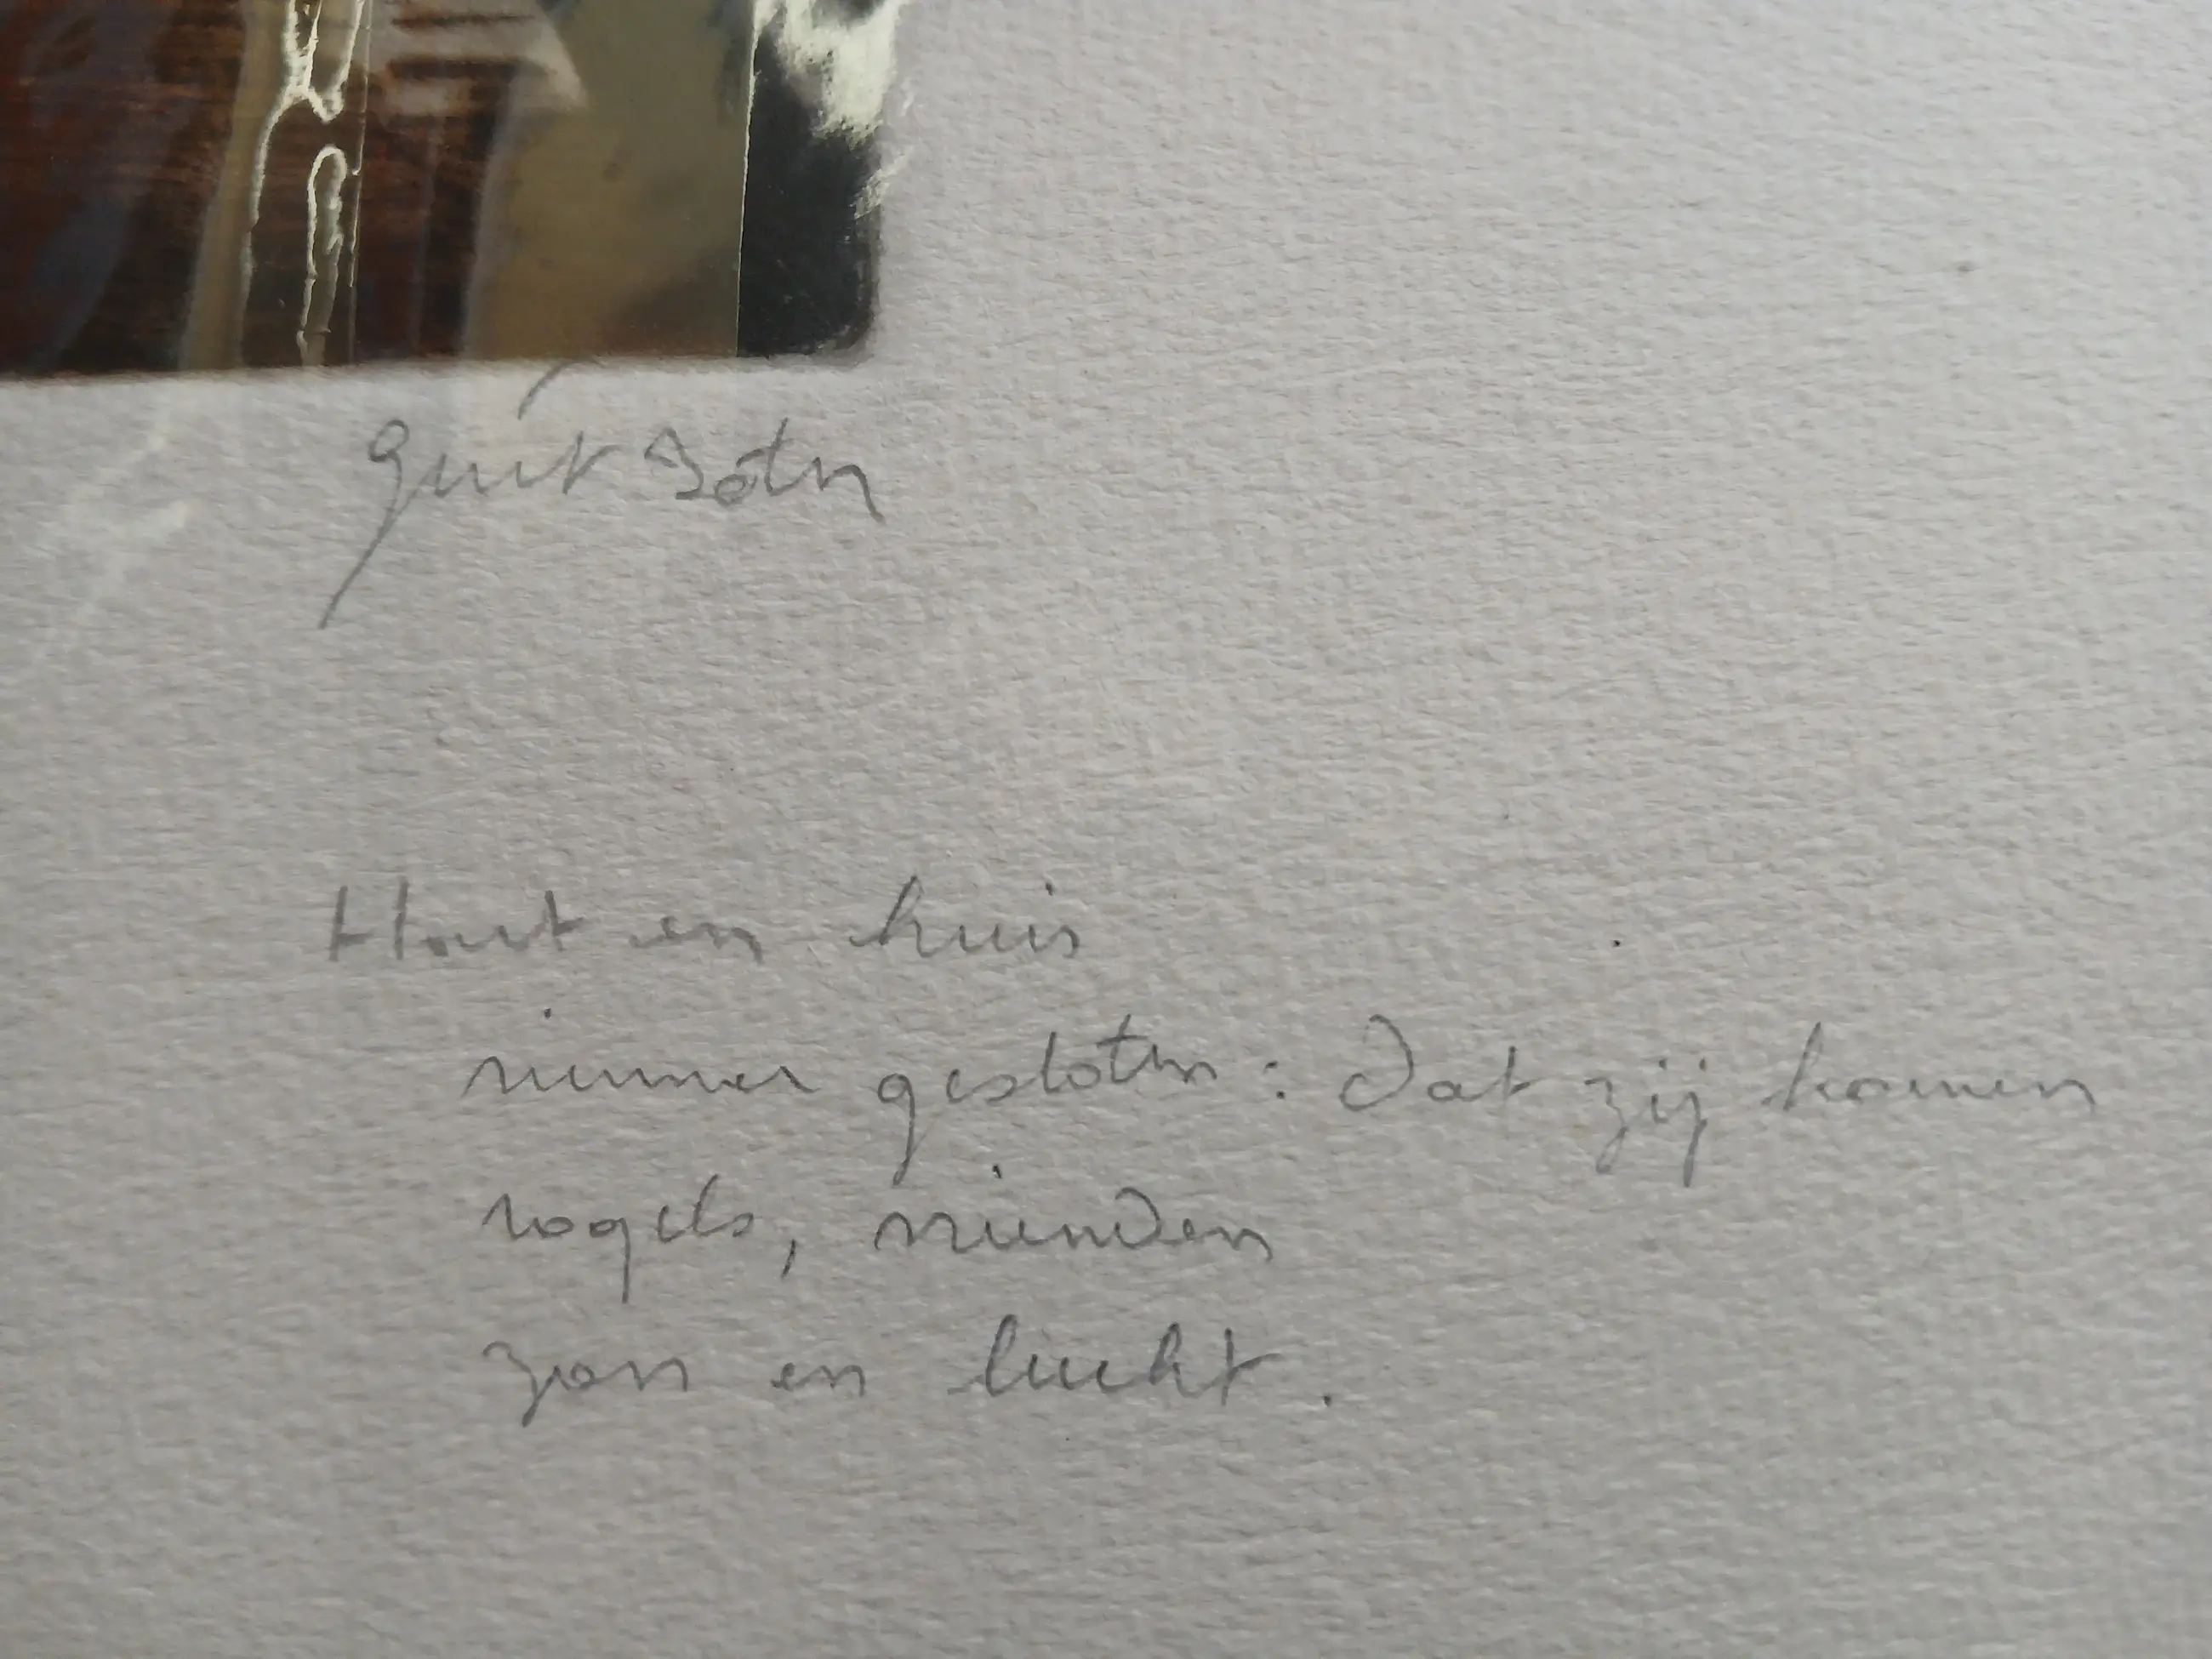 Hart en huis
nimmer gesloten: Dat zij komen
vogels, vrienden
zon en lucht.